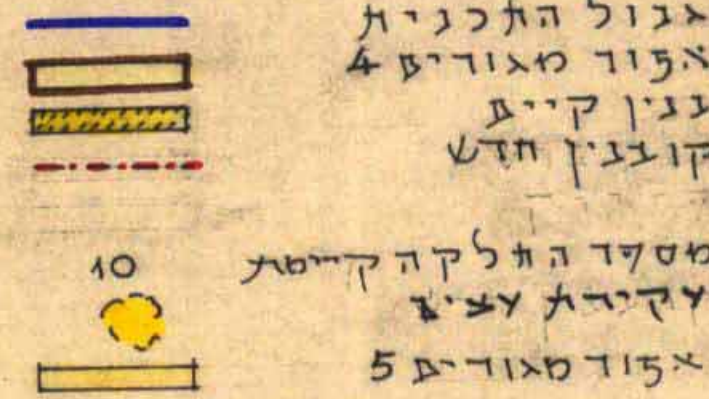 גבול התכנית
אזור מגורים 4
בנין קיים
קו בנין חדש
10 מספר החלקה קיימת
עקירת עצים
אזור מגורים 5